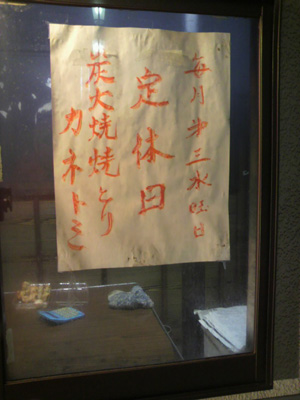 毎月第三水曜日
定休日
炭火焼焼とり
カネトミ